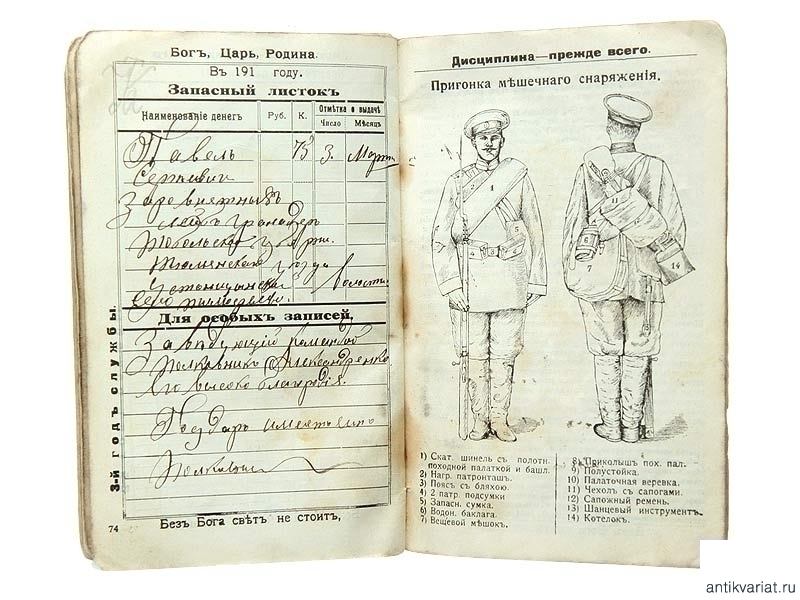 Богъ, Царь, Родина.
Въ 191 году.
Запасный листокъ
Наименованіе денегъ
Руб.
К.
Отмѣтка о выдачѣ
Число
Мѣсяцъ
Павелъ 75 3. Мартъ
Сергѣевичъ
Тобольской губерн.
Тюменскаго уѣзда
волости
Для особыхъ записей.
Завѣдующій командой
Полковникъ Александренко
Его высокоблагородія.
Государь
Полковникъ
3-й годъ службы.
74
Безъ Бога свѣтъ не стоитъ,
Дисциплина—прежде всего.
Пригонка мѣшечнаго снаряженія.
1) Скат. шинель съ полотн.
походной палаткой и башл.
2) Нагр. патронташъ.
3) Поясъ съ бляхою.
4) 2 патр. подсумки
5) Запасн. сумка.
6) Водон. баклага.
7) Вещевой мѣшокъ.
8) Приколышъ пох. пал.
9) Полустойка.
10) Палаточная веревка.
11) Чехолъ съ сапогами.
12) Сапожный ремень.
13) Шанцевый инструментъ
14) Котелокъ.
antikvariat.ru